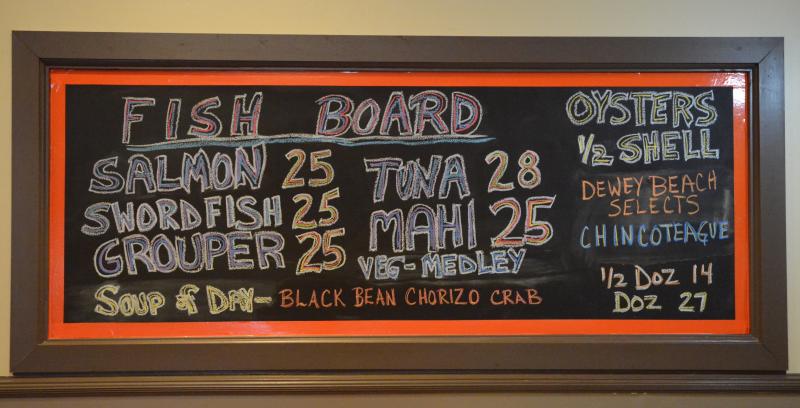 FISH BOARD
SALMON 25
SWORDFISH 25
GROUPER 25
TUNA 28
MAHI 25
VEG-MEDLEY
SOUP of DAY- BLACK BEAN CHORIZO CRAB
OYSTERS
1/2 SHELL
DEWEY BEACH
SELECTS
CHINCOTEAGUE
1/2 DOZ 14
DOZ 27